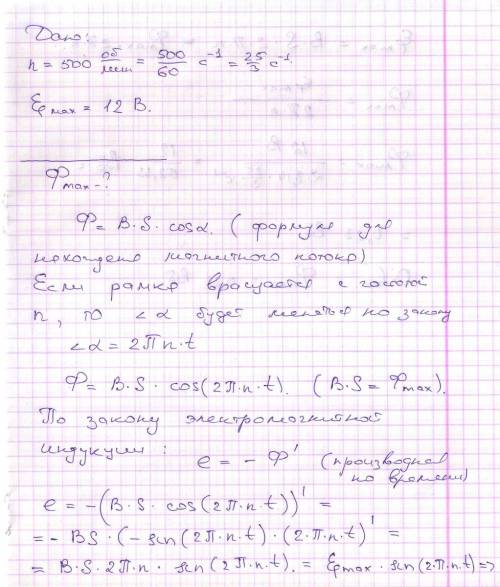 Дано:
n = 500 об/мин = 500/60 с⁻¹ = 25/3 с⁻¹.
Ɛmax = 12 В.
Фmax - ?
Ф = B·S·cosα. (формула для
нахождения магнитного потока)
Если рамка вращается с частотой
n, то ∠α будет меняться по закону
∠α = 2πn·t
Ф = B·S·cos(2π·n·t). (B·S = Фmax).
По закону электромагнитной
индукции:
e = - Ф' (производная
по времени)
e = -(B·S·cos(2π·n·t))' =
= - BS·(-sin(2π·n·t)·(2·π·n·t)' =
= B·S·2π·n·sin(2π·n·t). = Ɛmax·sin(2·π·n·t) =>